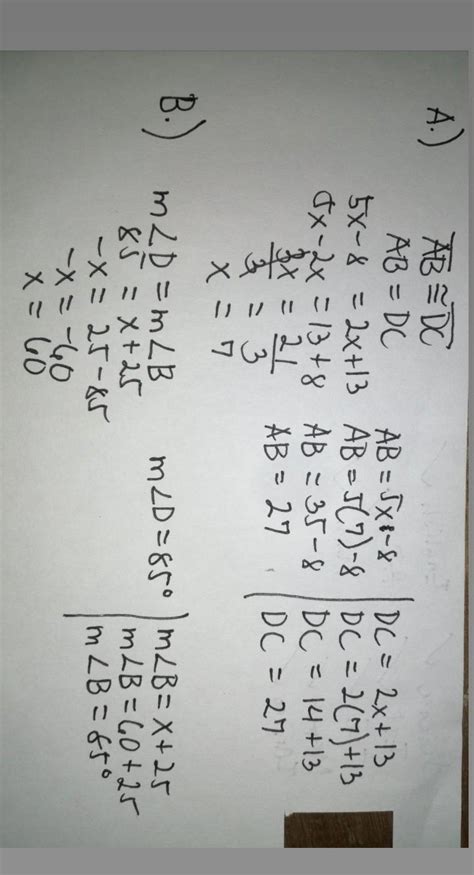 A.)
AB ≅ DC
AB = DC
5x-8 = 2x+13
5x-2x = 13+8
3x/3 = 21/3
x = 7
AB = 5x-8
AB = 5(7)-8
AB = 35-8
AB = 27
DC = 2x+13
DC = 2(7)+13
DC = 14+13
DC = 27
B.)
m∠D = m∠B
85 = x+25
-x = 25-85
-x = -60
x = 60
m∠D = 85°
m∠B = x+25
m∠B = 60+25
m∠B = 85°